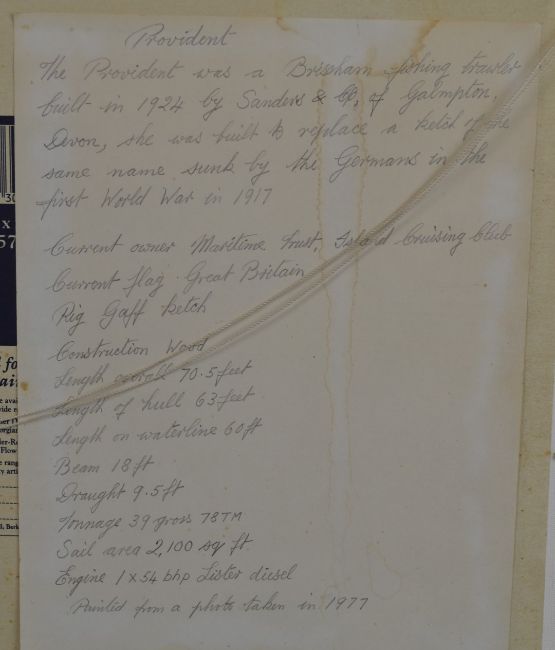 Provident
The Provident was a Brixham fishing trawler
built in 1924 by Sanders & Co, of Galmpton,
Devon, she was built to replace a ketch of the
same name sunk by the Germans in the
first World War in 1917
Current owner Maritime Trust, Island Cruising Club
Current flag Great Britain
Rig Gaff ketch
Construction Wood
Length overall 70.5 feet
Length of hull 63 feet
Length on waterline 60 ft
Beam 18 ft
Draught 9.5 ft
Tonnage 39 gross 78 TM
Sail area 2,100 sq ft.
Engine 1 x 54 bhp Lister diesel
Painted from a photo taken in 1977